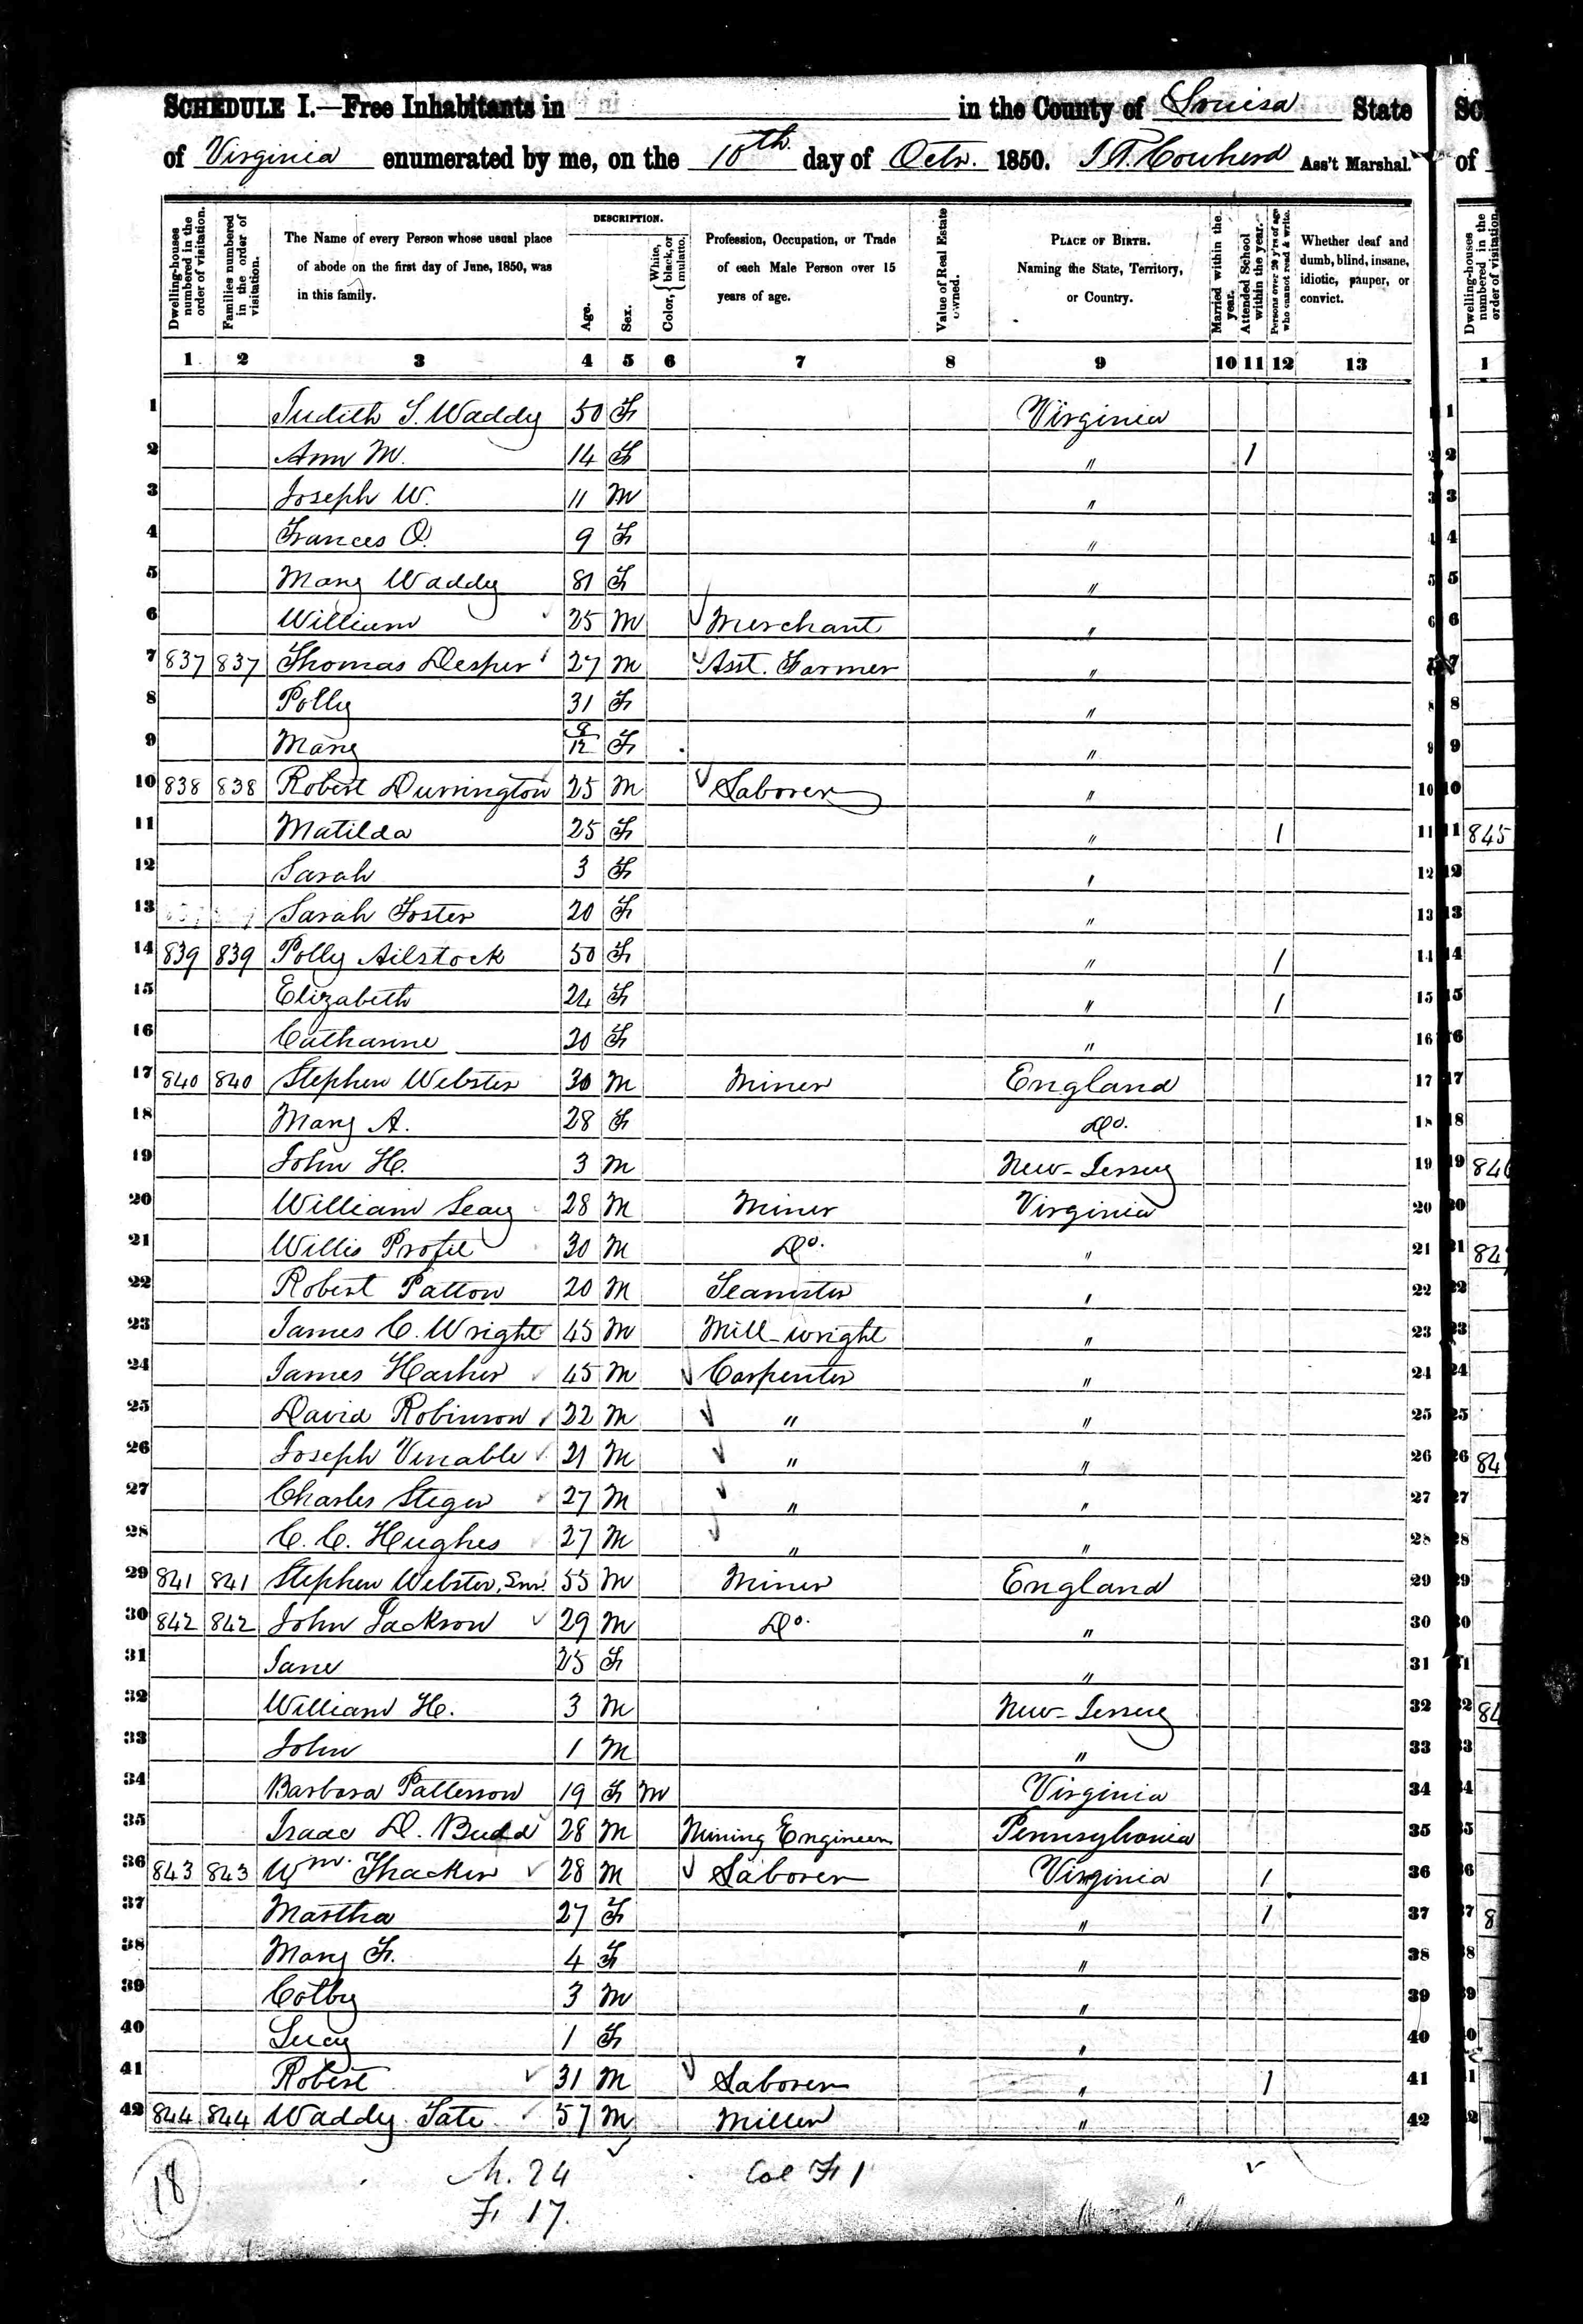 SCHEDULE I.—Free Inhabitants in in the County of Louisa State
of Virginia enumerated by me, on the 10th day of Octr. 1850. Ass't Marshal.
Dwelling-houses numbered in the order of visitation.
Families numbered in the order of visitation.
The Name of every Person whose usual place of abode on the first day of June, 1850, was in this family.
DESCRIPTION.
Age.
Sex.
Color, { White, black, or mulatto.
Profession, Occupation, or Trade of each Male Person over 15 years of age.
Value of Real Estate owned.
PLACE OF BIRTH. Naming the State, Territory, or Country.
Married within the year.
Attended School within the year.
Persons over 20 y'rs of age who cannot read & write.
Whether deaf and dumb, blind, insane, idiotic, pauper, or convict.
1 2 3 4 5 6 7 8 9 10 11 12 13
1 Judith S. Waddy 50 F Virginia 1
2 Ann M. 14 F " 1 2
3 Joseph W. 11 M " 3
4 Frances O. 9 F " 4
5 Mary Waddy 81 F " 5
6 William 25 M Merchant " 6
7 837 837 Thomas Desper 27 M Asst. Farmer " 7
8 Polly 31 F " 8
9 Mary 9/12 F " 9
10 838 838 Robert Durrington 25 M Laborer " 10
11 Matilda 25 F " 1 11
12 Sarah 3 F " 12
13 Sarah Foster 20 F " 13
14 839 839 Polly Ailstock 50 F " 1 14
15 Elizabeth 24 F " 1 15
16 Catharine 20 F " 16
17 840 840 Stephen Webster 30 M Miner England 17
18 Mary A. 28 F Do. 18
19 John H. 3 M New-Jersey 19
20 William Seay 28 M Miner Virginia 20
21 Willis Profit 30 M Do. " 21
22 Robert Patton 20 M Teamster " 22
23 James C. Wright 45 M Mill-wright " 23
24 James Harher 45 M Carpenter " 24
25 David Robinson 22 M " " 25
26 Joseph Venable 21 M " " 26
27 Charles Steger 27 M " " 27
28 C. C. Hughes 27 M " " 28
29 841 841 Stephen Webster, Snr. 55 M Miner England 29
30 842 842 John Jackson 29 M Do. " 30
31 Jane 25 F " 31
32 William H. 3 M New-Jersey 32
33 John 1 M " 33
34 Barbara Patterson 19 F M Virginia 34
35 Isaac D. Budd 28 M Mining Engineer Pennsylvania 35
36 843 843 Wm. Thacker 28 M Laborer Virginia 1 36
37 Martha 27 F " 1 37
38 Mary F. 4 F " 38
39 Colby 3 M " 39
40 Lucy 1 F " 40
41 Robert 31 M Laborer " 1 41
42 844 844 Waddy Tate 57 M Miller " 42
18
M. 24 Col F 1
F 17.